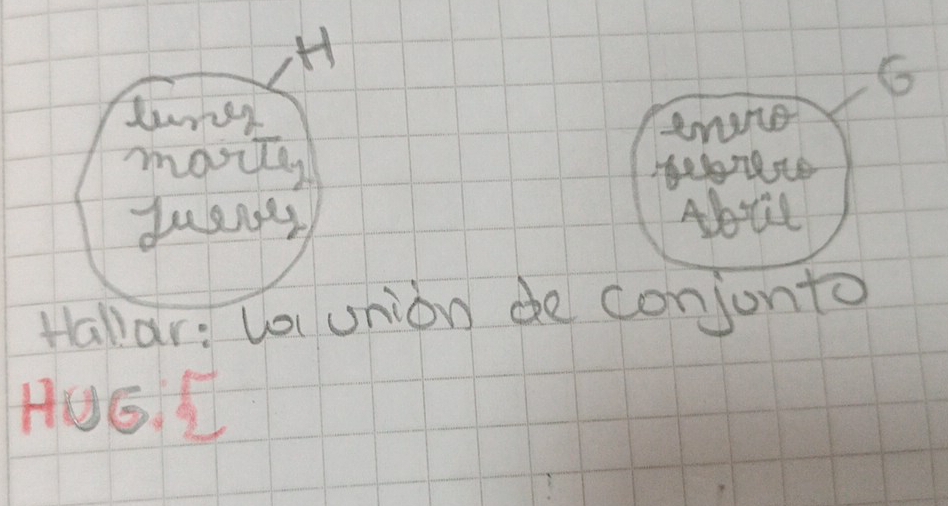 H
lunes
martes
Jueves
G
enero
febrero
Abril
Hallar: La unión de conjunto
HUG:{